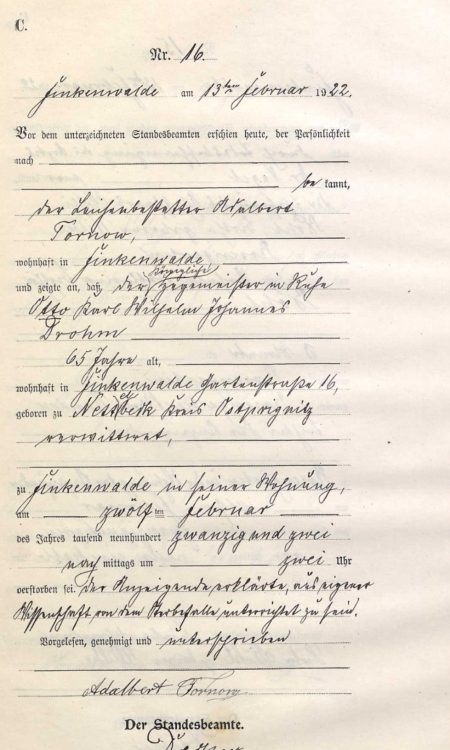 C.
Nr. 16.
Finkenwalde am 13ten Februar 1922.
Vor dem unterzeichneten Standesbeamten erschien heute, der Persönlichkeit
nach
be kannt,
der Leichenbestatter Adalbert
Tornow,
wohnhaft in Finkenwalde
und zeigte an, daß der Königliche Hegemeister in Ruhe
Otto Karl Wilhelm Johannes
Drohm
65 Jahre alt,
wohnhaft in Finkenwalde Gartenstraße 16,
geboren zu Kreis Ostprignitz
verwitwet,
zu Finkenwalde in seiner Wohnung,
am zwölften Februar
des Jahres tausend neunhundert zwanzig und zwei
nach mittags um zwei Uhr
verstorben sei. Der Anzeigende erklärte, aus eigener
Wissenschaft von dem Sterbefalle unterrichtet zu sein.
Vorgelesen, genehmigt und unterschrieben
Adalbert Tornow
Der Standesbeamte.